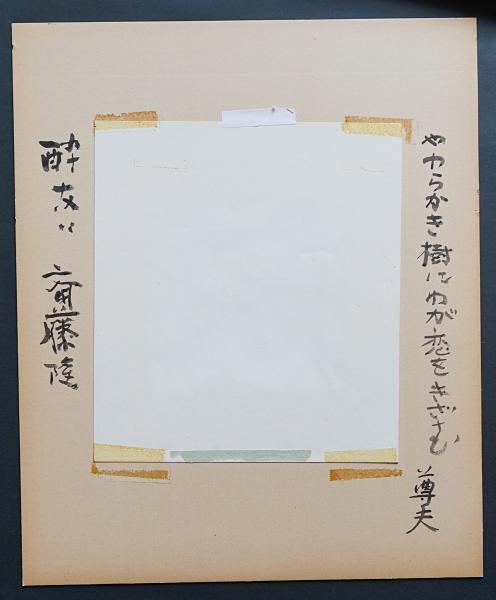 やわらかき樹にわが恋をきざむ 尊夫
酔 斎藤隆